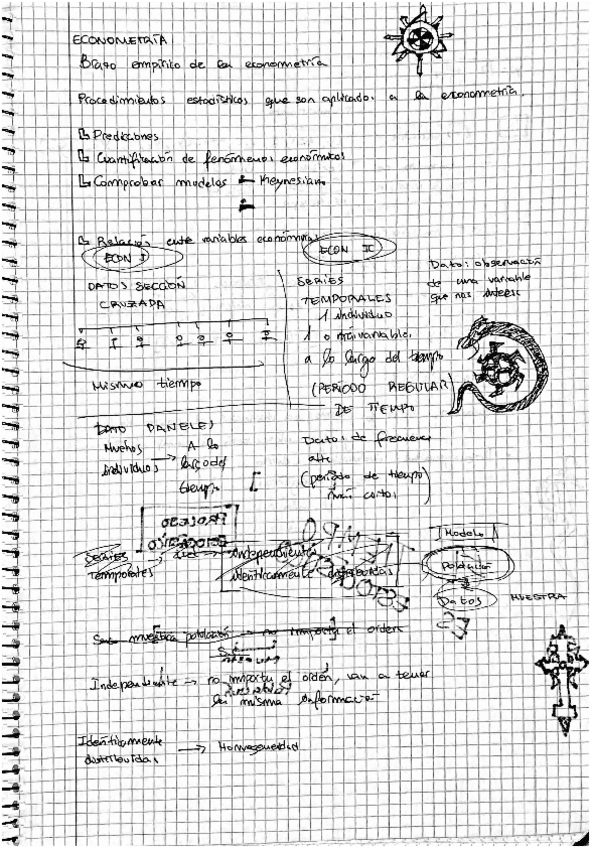 ECONOMETRÍA
Brazo empírico de la econometría
Procedimientos estadísticos que son aplicados a la econometría.
Predicciones
Cuantificación de fenómenos económicos
Comprobar modelos Keynesian
Relación entre variables económicas
ECON I
DATOS SECCIÓN
CRUZADA
Mismo tiempo
ECON II
SERIES
TEMPORALES
1 individuo
1 o más variables
a lo largo del tiempo
(PERIODO REGULAR)
DE TIEMPO
Dato: observación
de una variable
que nos interesa
DATO PANELES
Muchos individuos → A lo largo del tiempo
Datos de frecuencia
alta
(periodo de tiempo)
más cortos
PROCESO
ESTOCÁSTICO
SERIES
Temporales
independiente
idénticamente distribuidas
Modelo
Población
Datos MUESTRA
población → no importa el orden
Independiente → no importa el orden, van a tener
la misma información
Idénticamente
distribuidas → Homogeneidad